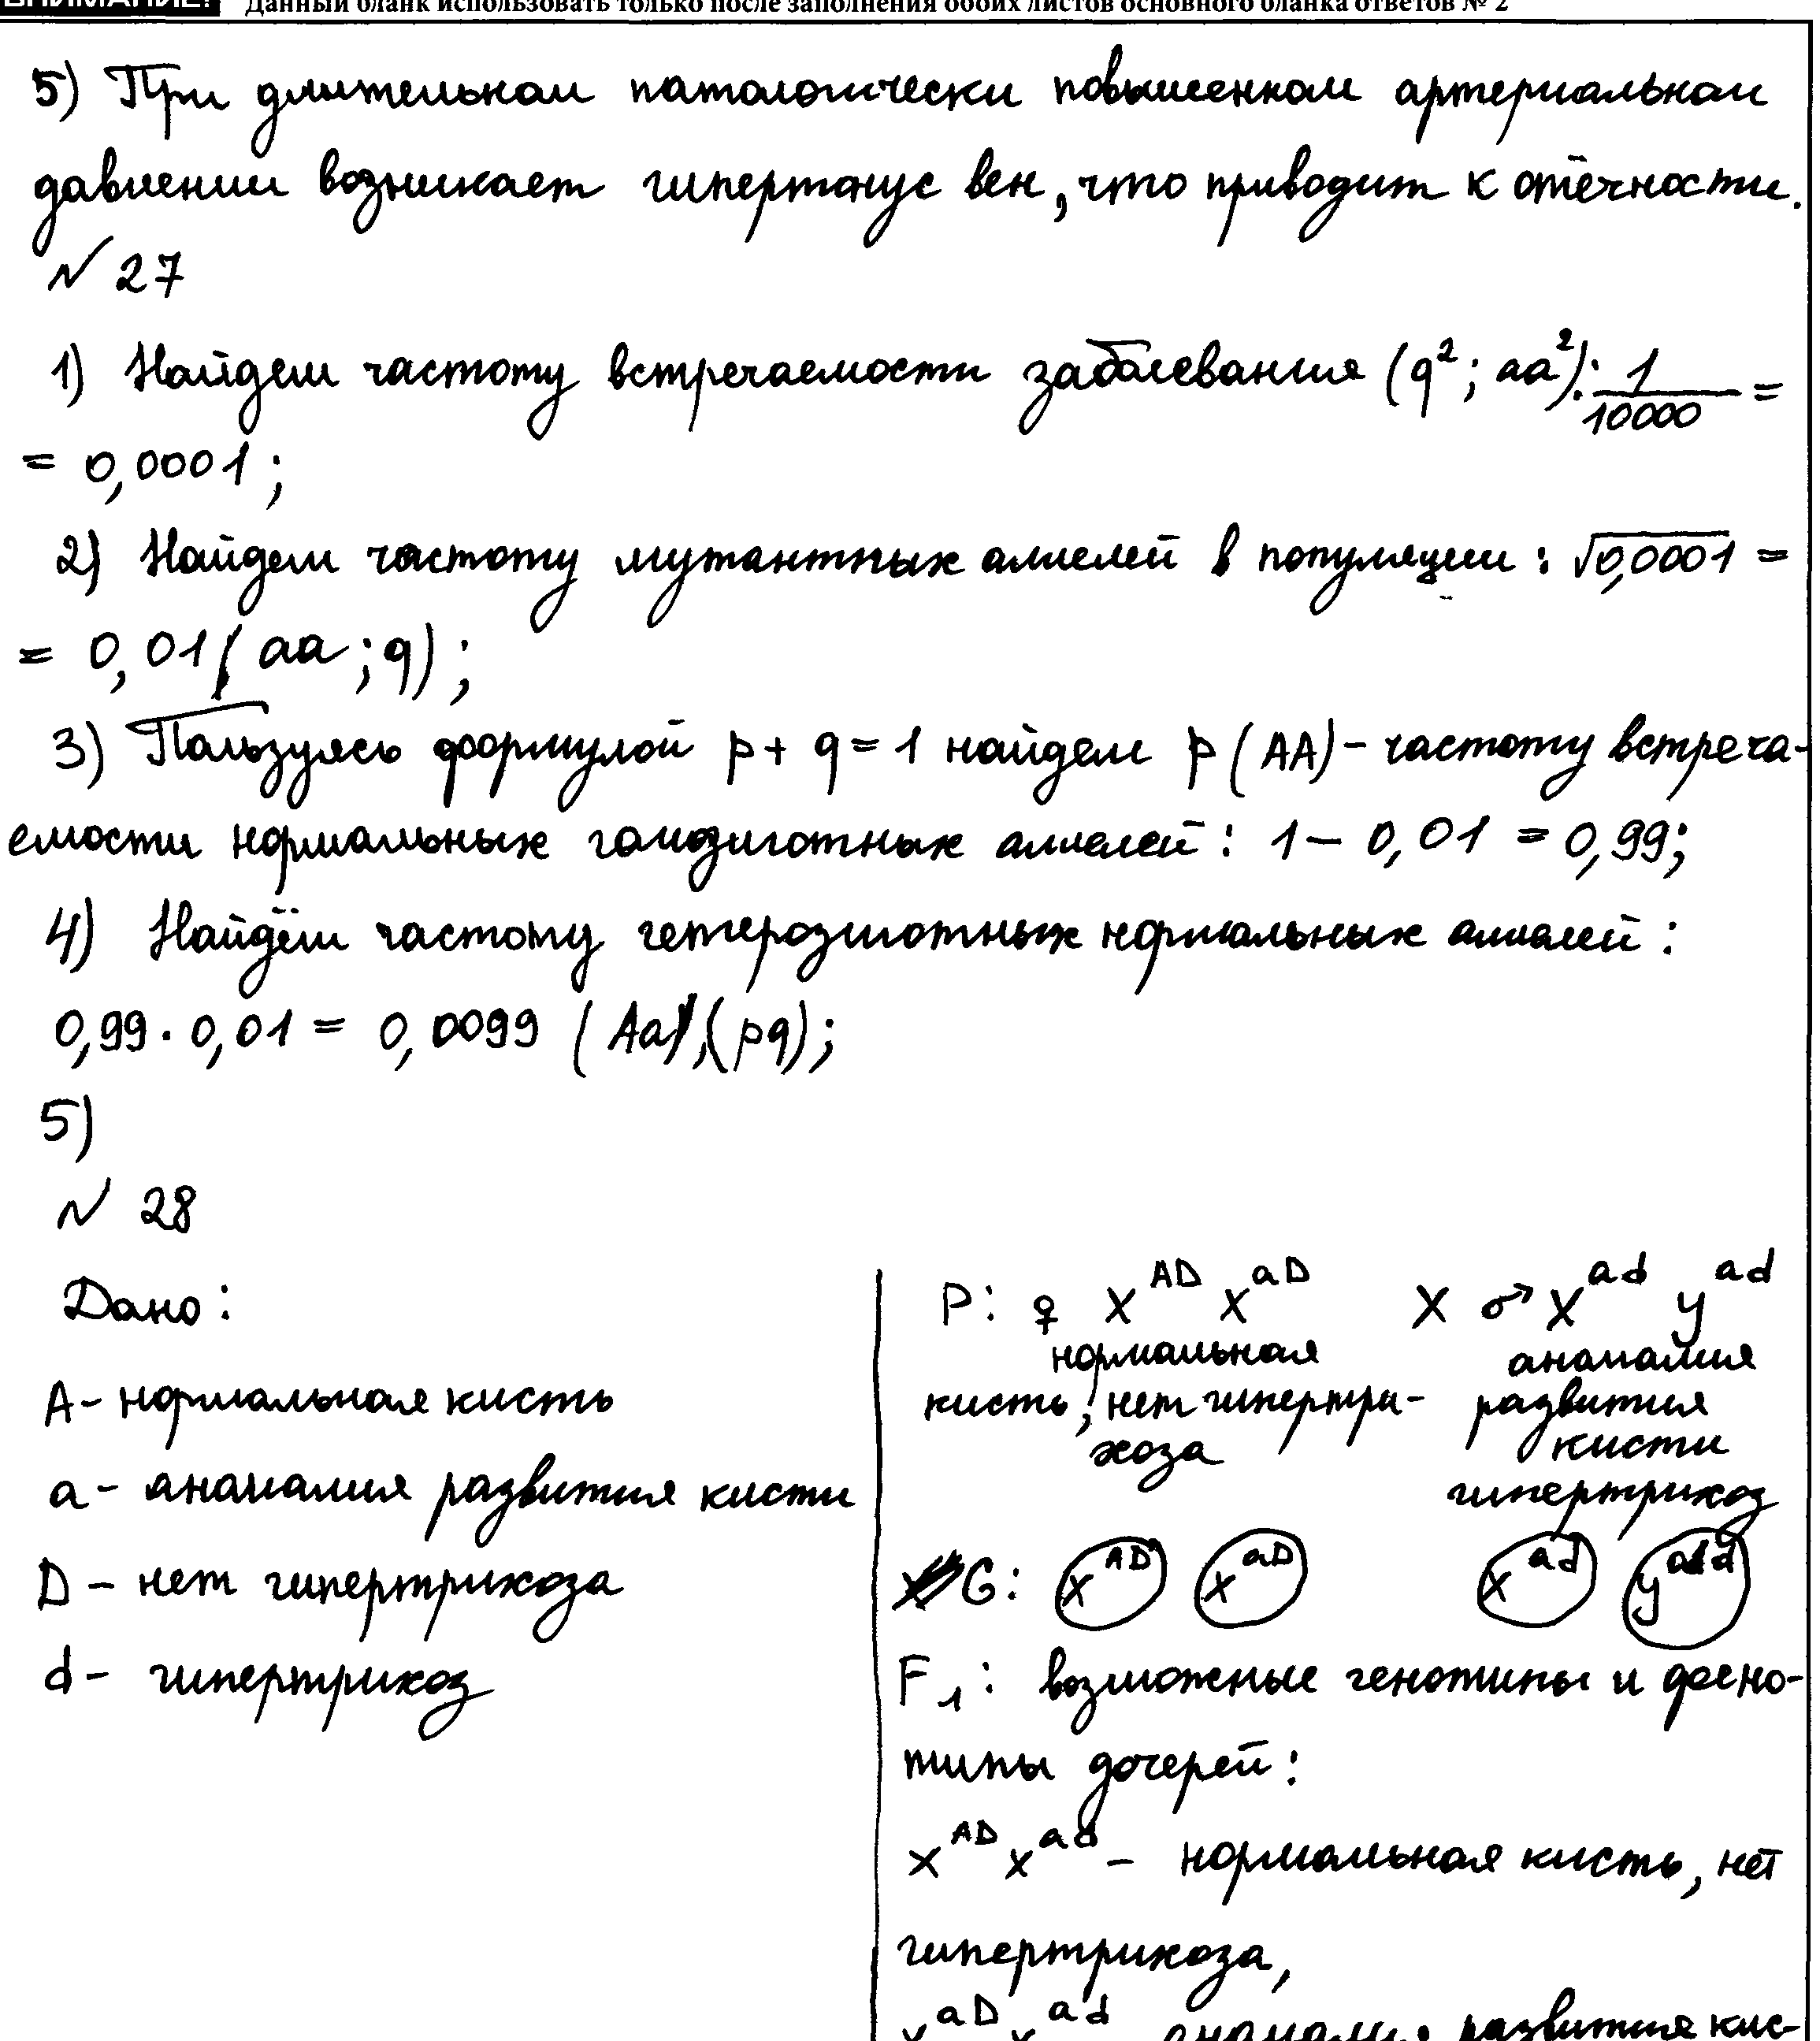 ВНИМАНИЕ! Данный бланк использовать только после заполнения обоих листов основного бланка ответов № 2
5) При длительном патологически повышенном артериальном
давлении возникает гипертонус вен, что приводит к отёчности.
№ 27
1) Найдем частоту встречаемости заболевания (q²; aa²): 1/10000 =
= 0,0001;
2) Найдем частоту мутантных аллелей в популяции: √0,0001 =
= 0,01 (aa; q);
3) Пользуясь формулой p + q = 1 найдем p (AA) - частоту встреча-
емости нормальных гомозиготных аллелей: 1 - 0,01 = 0,99;
4) Найдём частоту гетерозиготных нормальных аллелей:
0,99 · 0,01 = 0,0099 (Aa), (pq);
5)
№ 28
Дано:
A - нормальная кисть
a - аномалия развития кисти
D - нет гипертрихоза
d - гипертрихоз
P: ♀ X^AD X^aD X ♂ X^ad y^ad
нормальная аномалия
кисть, нет гипертри- развития
хоза кисти
гипертрихоз
G: X^AD X^aD X^ad y^ad
F1: возможные генотипы и фено-
типы дочерей:
X^AD X^ad - нормальная кисть, нет
гипертрихоза,
X^aD X^ad аномалия развития кис-